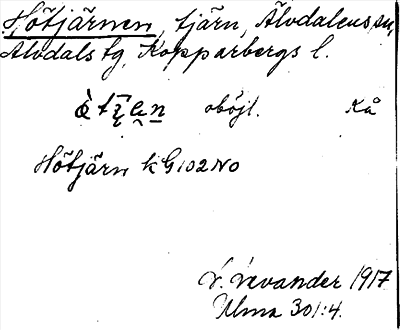 Hötjärnen, tjärn, Älvdalens sn,
Älvdals tg, Kopparbergs l.
oböjl. Kå
Hötjärn k G102NO
L. Levander 1917
Ulma 301:4.